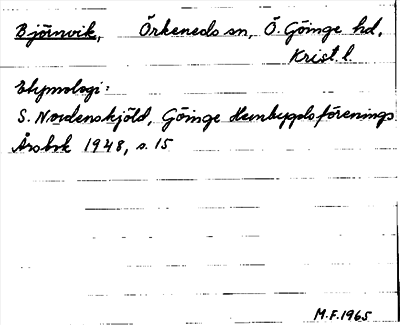 Björnvik, Örkeneds sn, Ö. Göinge hd,
Krist. l.
Etymologi:
S. Nordenskjöld, Göinge Hembygdsförenings
Årsbok 1948, s. 15
M.F. 1965